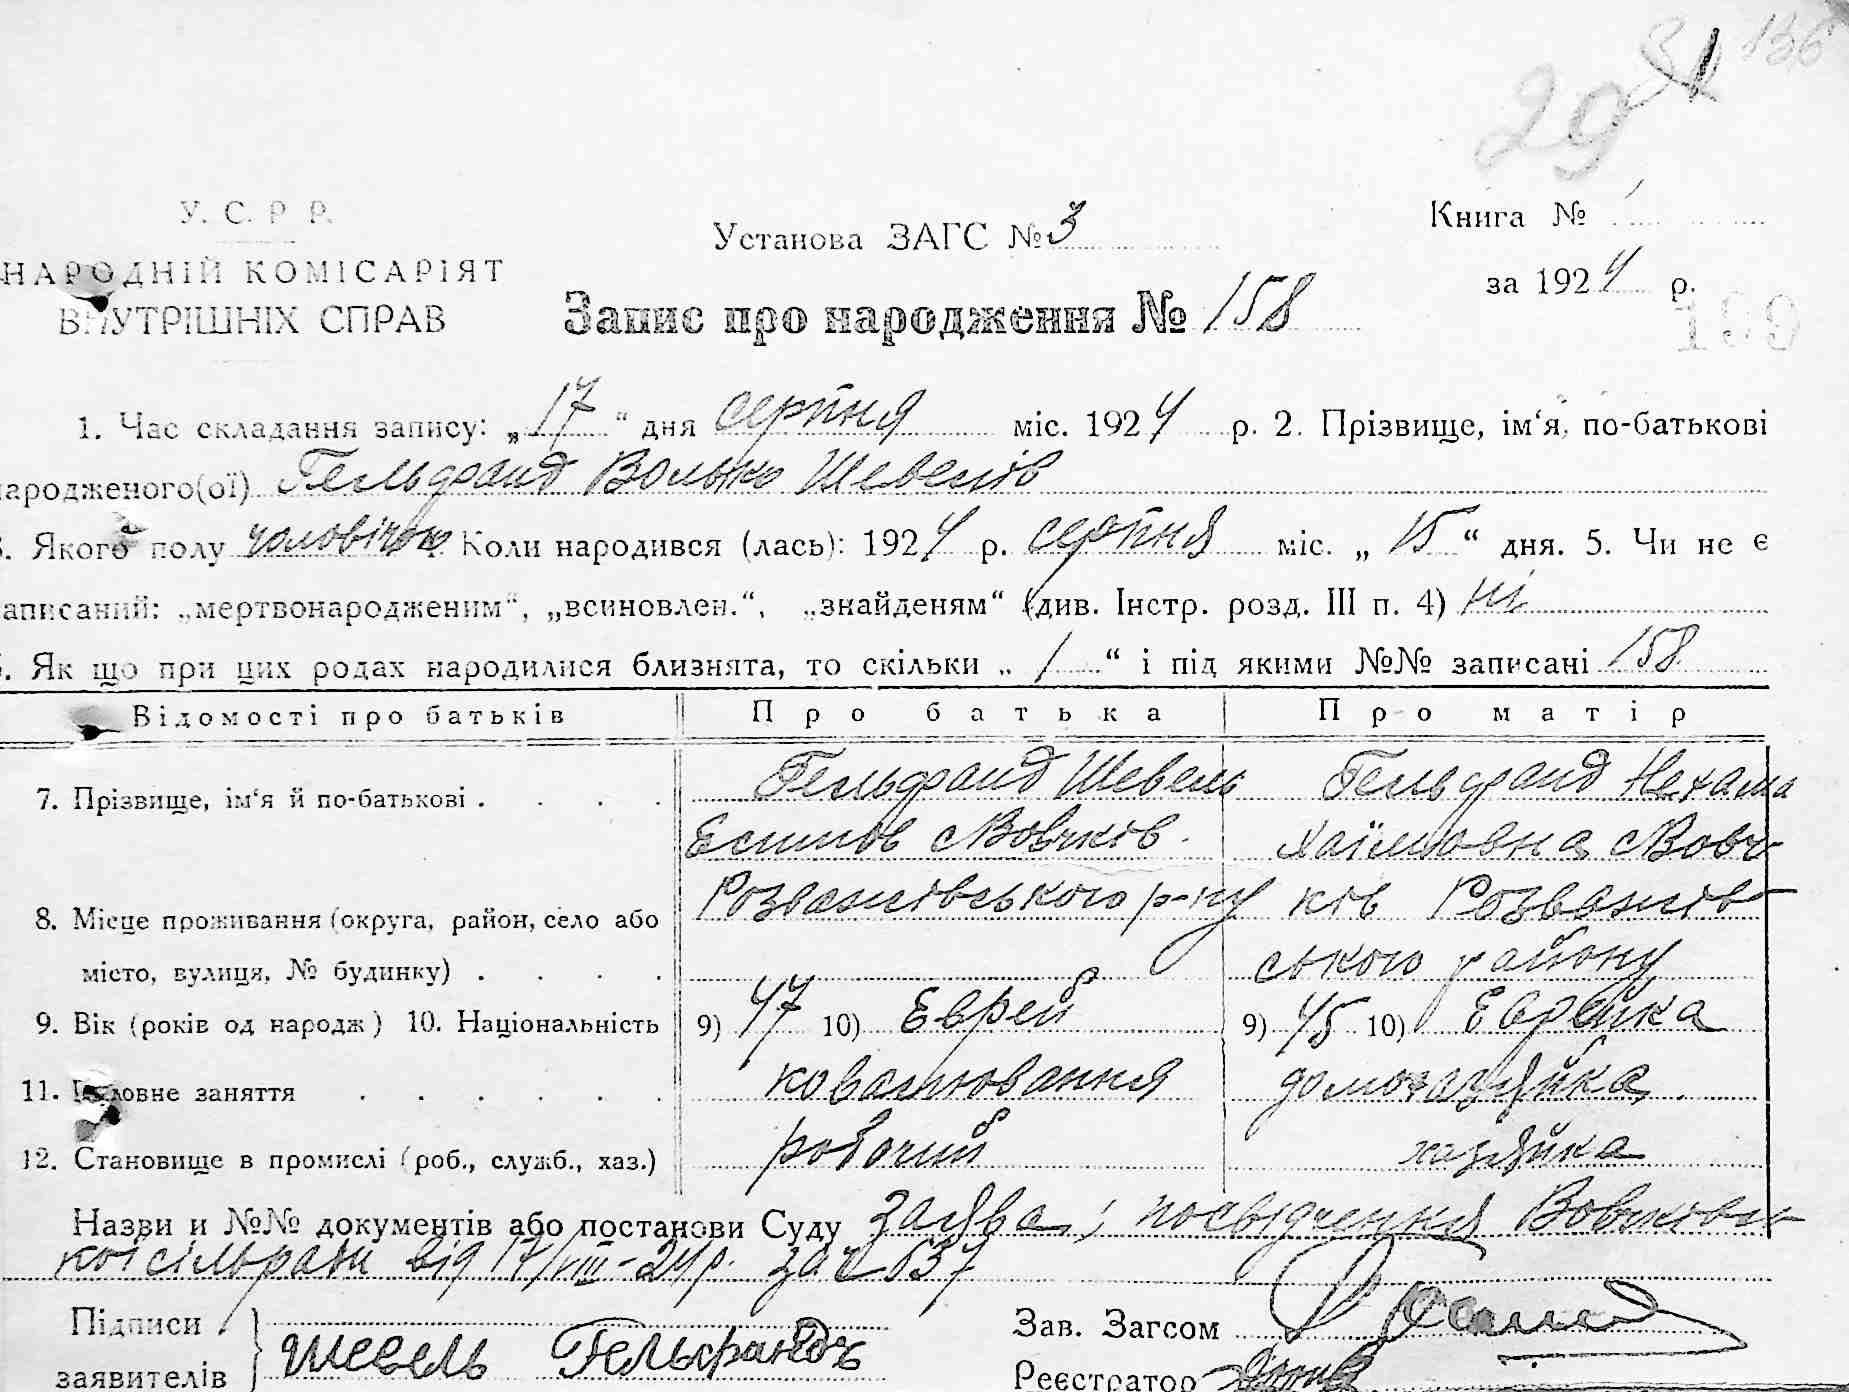 136
81
29
У. С. Р Р.
НАРОДНІЙ КОМІСАРІЯТ
ВНУТРІШНІХ СПРАВ
Установа ЗАГС № 3
Книга № 1
за 1924 р.
Запис про народження № 158
199
1. Час складання запису: „17“ дня серпня міс. 1924 р. 2. Прізвище, ім‘я, по-батькові
народженого(ої) Гельфанд Волько Шевелів
3. Якого полу чоловічого Коли народився (лась): 1924 р. серпня міс. „15“ дня. 5. Чи не є
записаний: „мертвонародженим“, „всиновлен.“, „знайденям“ (див. Інстр. розд. III п. 4) ні
6. Як що при цих родах народилися близнята, то скільки „1“ і під якими №№ записані 158
Відомості про батьків Про батька Про матір
7. Прізвище, ім‘я й по-батькові . . . . Гельфанд Шевель Гельфанд Нехама
Вовчків Хаїмовна Вовч-
8. Місце проживання (округа, район, село або Розважівського р-ну ків Розважів-
місто, вулиця, № будинку) . . . . ського району
9. Вік (років од народж) 10. Національність 9) 47 10) Еврей 9) 45 10) Еврейка
11. Головне заняття . . . . . . ковалювання домохазяйка
12. Становище в промислі (роб., служб., хаз.) робочий хазяйка
Назви и №№ документів або постанови Суду Заява, посвідчення Вовчківсь-
кої сільради від 17/VIII-24 р. за № 637
Підписи
заявителів
Шевель Гельфанд
Зав. Загсом
Реєстратор